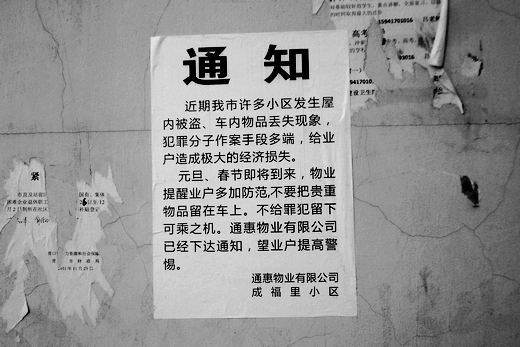 通 知
近期我市许多小区发生屋
内被盗、车内物品丢失现象，
犯罪分子作案手段多端，给业
户造成极大的经济损失。
元旦、春节即将到来，物业
提醒业户多加防范,不要把贵重
物品留在车上。不给罪犯留下
可乘之机。通惠物业有限公司
已经下达通知，望业户提高警
惕。
通惠物业有限公司
成福里小区
15941701016
高考
紧